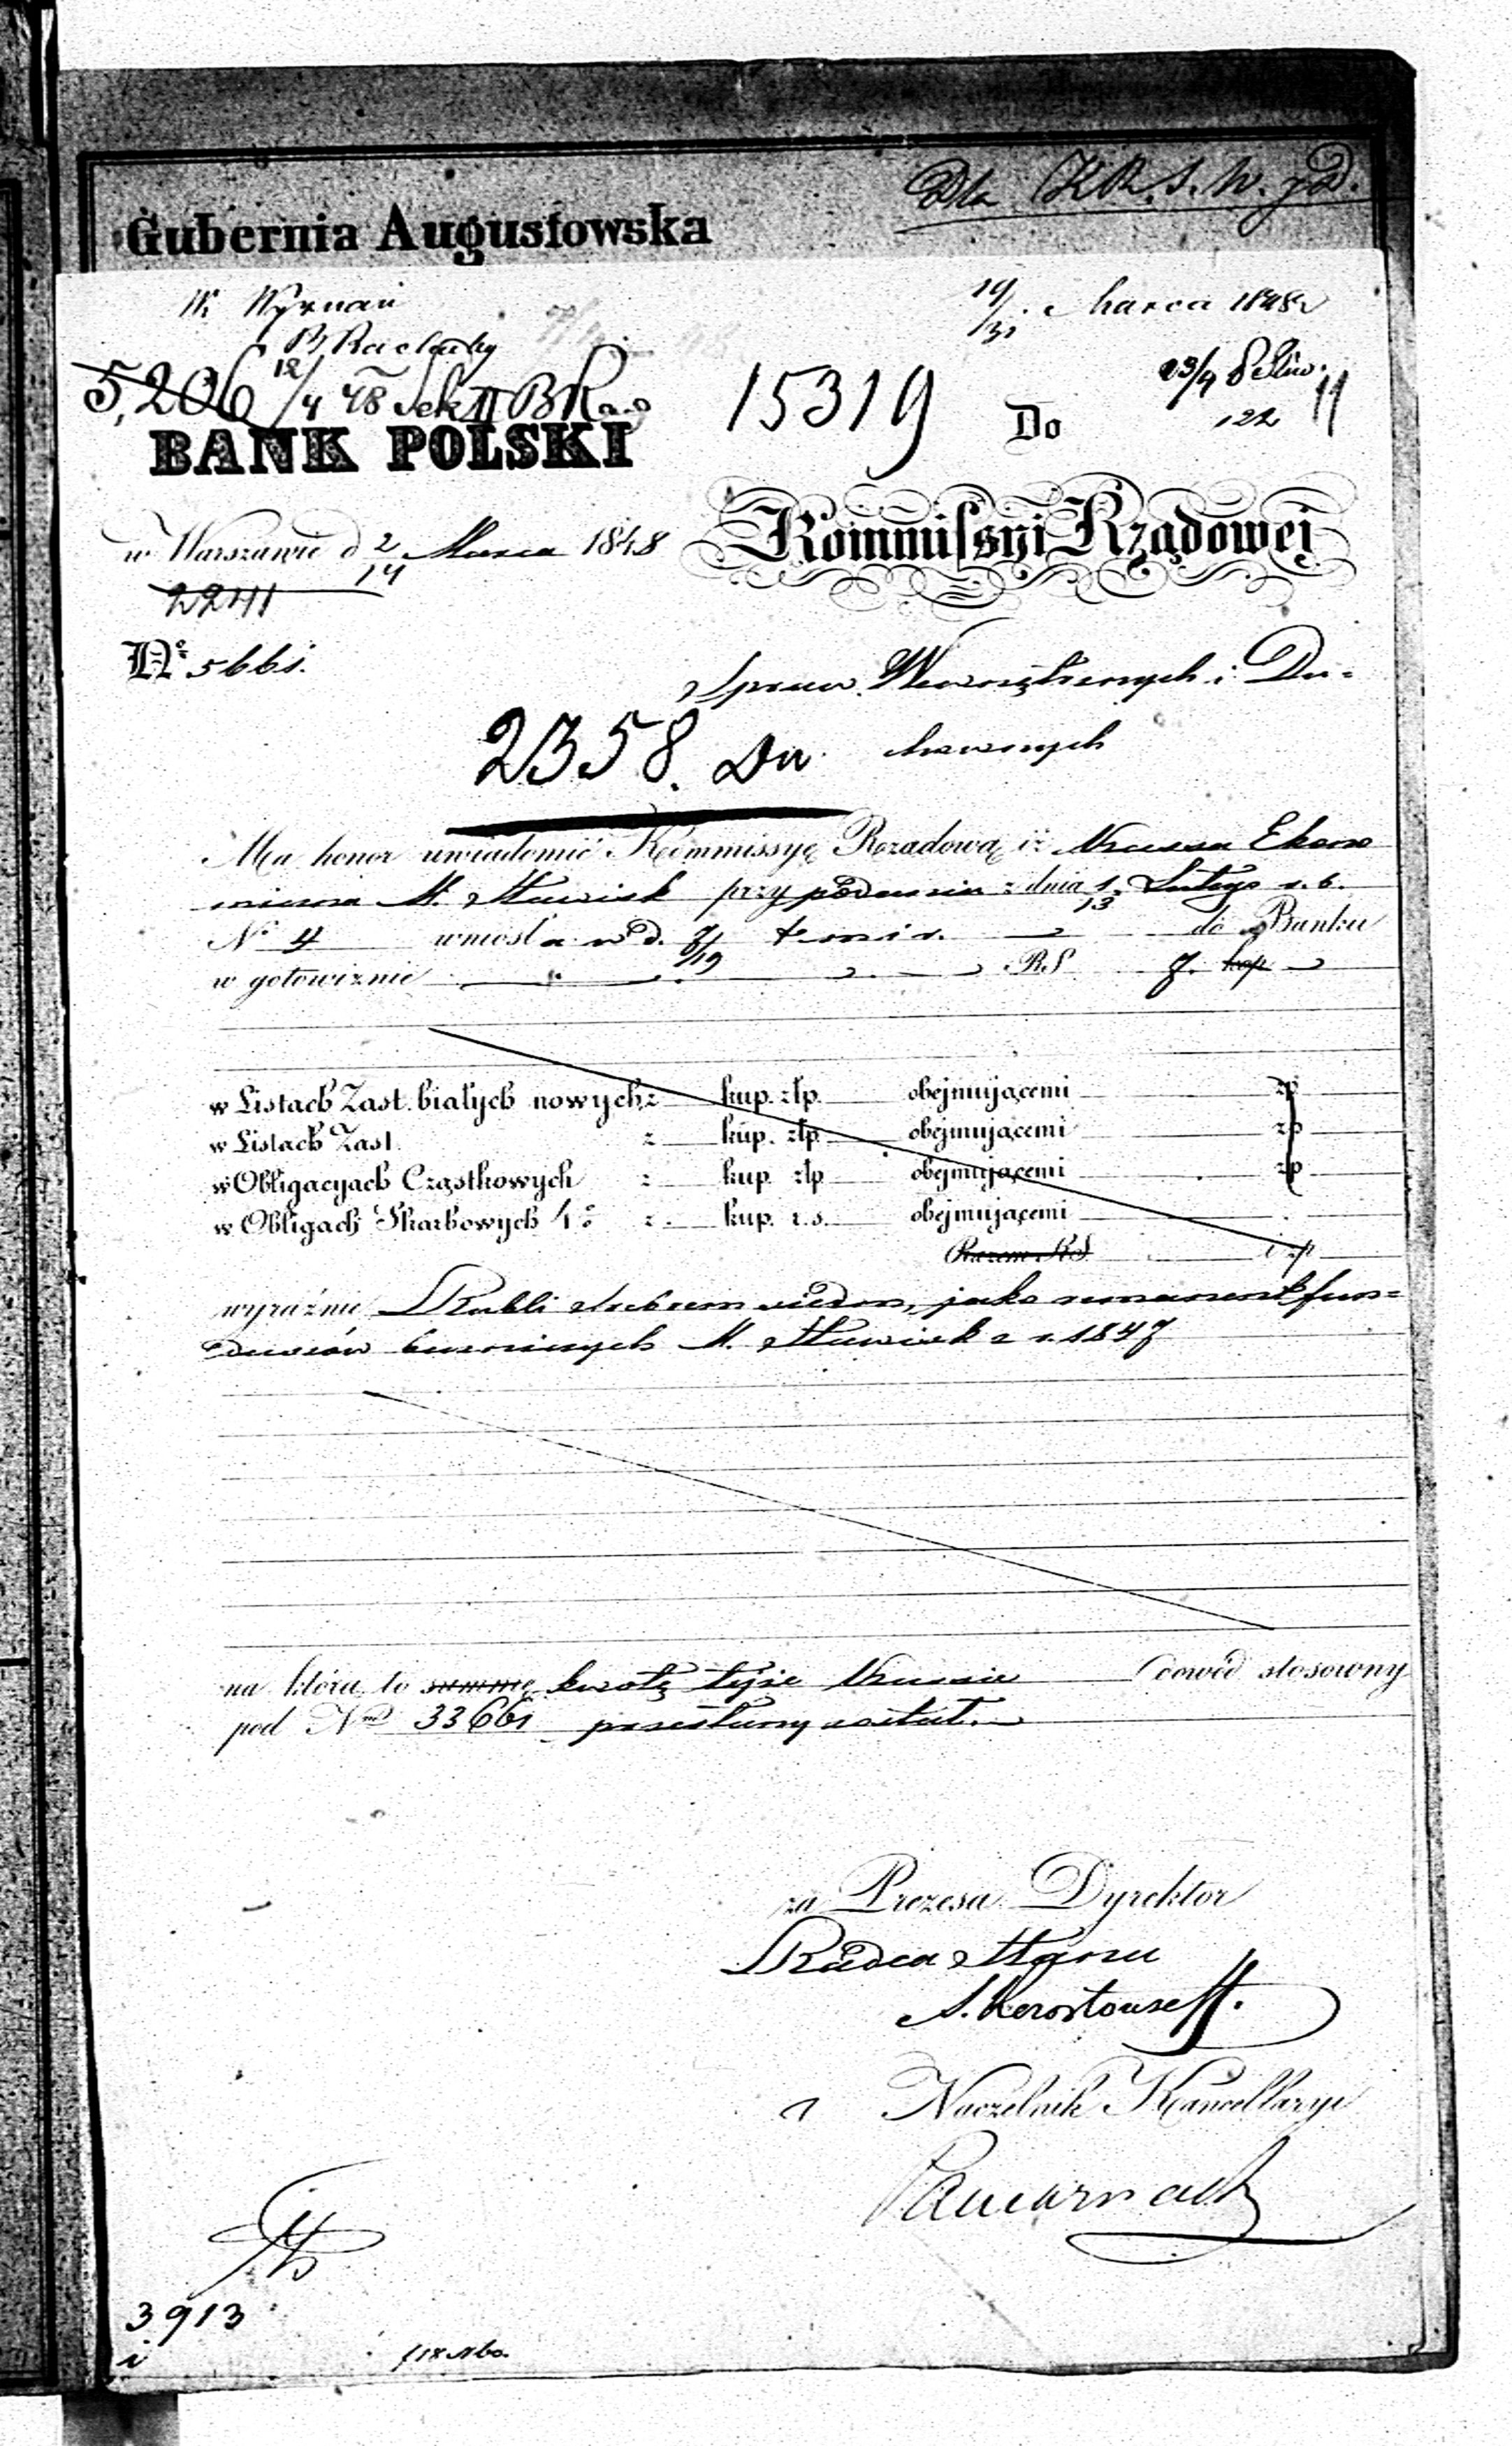 Dla K.R.S.W. y D.
Gubernia Augustowska
W. Wyznań
19/31 Marca 1848
B. Rachuby
5,206 12/4 48 Sek II B Ra
15319
23/4
122
11
BANK POLSKI
Do
w Warszawie d 2/14 Marca 1848
Kommissyi Rządowej
2241
No 5661.
Spraw Wewnętrznych i Du=
chownych
2358. Du
Ma honor uwiadomić Kommissyę Rządową iż Kassa Ekono
miczna M. Stawisk przy podaniu z dnia 1/13 Lutego r. b.
No 4 wniosła w d. 7/19 t. m i r. do Banku
w gotowiznie RS 7. kop
w Listach Zast. białych nowych z kup. złp. obejmującemi zp
w Listach Zast. z kup. złp. obejmującemi zp
w Obligacyach Cząstkowych z kup. złp. obejmującemi zp
w Obligach Skarbowych 4% z kup. r.s. obejmującemi
Razem RS i zp
wyraźnie Rubli srebrem siedm, jako remanent fun=
duszów M. Stawisk z r. 1847
na którą to summę kwotę tejże Kassie dowód stosowny
pod Nm 33661 przesłany został.
za Prezesa Dyrektor
Radca Stanu
Naczelnik Kancellaryi
3913